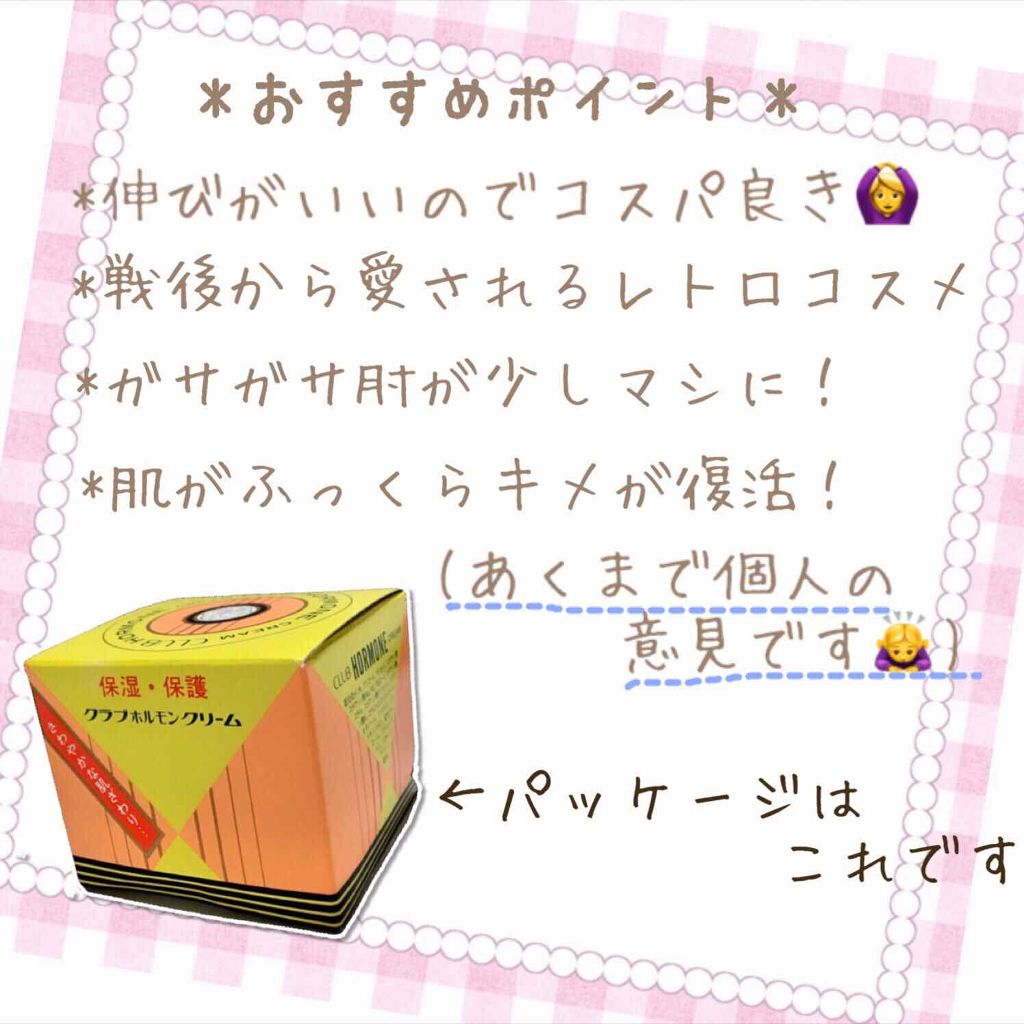 *おすすめポイント*
*伸びがいいのでコスパ良き🙆‍♀️
*戦後から愛されるレトロコスメ
*ガサガサ肘が少しマシに!
*肌がふっくらキメが復活!
(あくまで個人の
意見です🙇‍♀️)
CLUB HORMONE CREAM
CLUB HORMONE CREAM
保湿・保護
クラブホルモンクリーム
さわやかな肌ざわり...
←パッケージは
これです